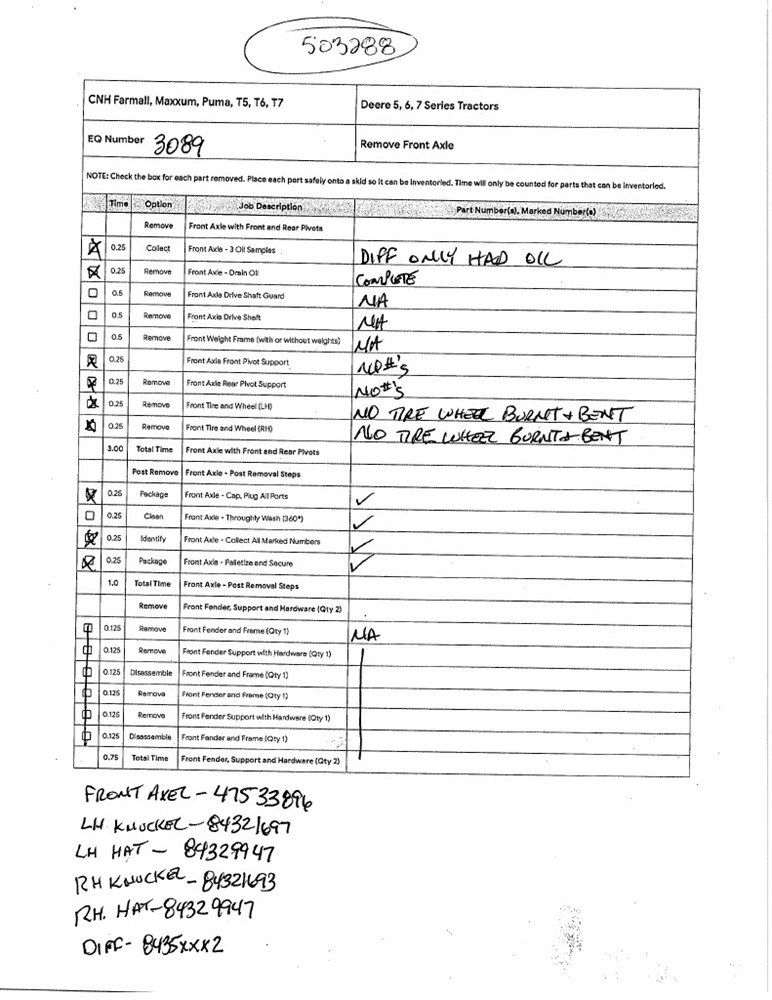 503288
CNH Farmall, Maxxum, Puma, T5, T6, T7 Deere 5, 6, 7 Series Tractors
EQ Number 3089 Remove Front Axle
NOTE: Check the box for each part removed. Place each part safely onto a skid so it can be inventoried. Time will only be counted for parts that can be inventoried.
Time Option Job Description Part Number(s), Marked Number(s)
Remove Front Axle with Front and Rear Pivots
0.25 Collect Front Axle - 3 Oil Samples DIFF ONLY HAD OIL
0.25 Remove Front Axle - Drain Oil COMPLETE
0.5 Remove Front Axle Drive Shaft Guard NA
0.5 Remove Front Axle Drive Shaft NA
0.5 Remove Front Weight Frame (with or without weights) NA
0.25 Front Axle Front Pivot Support NO #'s
0.25 Remove Front Axle Rear Pivot Support NO #'s
0.25 Remove Front Tire and Wheel (LH) NO TIRE WHEEL BURNT & BENT
0.25 Remove Front Tire and Wheel (RH) NO TIRE WHEEL BURNT & BENT
3.00 Total Time Front Axle with Front and Rear Pivots
Post Remove Front Axle - Post Removal Steps
0.25 Package Front Axle - Cap, Plug All Ports ✓
0.25 Clean Front Axle - Throughly Wash (360°) ✓
0.25 Identify Front Axle - Collect All Marked Numbers ✓
0.25 Package Front Axle - Palletize and Secure ✓
1.0 Total Time Front Axle - Post Removal Steps
Remove Front Fender, Support and Hardware (Qty 2)
0.125 Remove Front Fender and Frame (Qty 1) NA
0.125 Remove Front Fender Support with Hardware (Qty 1)
0.125 Disassemble Front Fender and Frame (Qty 1)
0.125 Remove Front Fender and Frame (Qty 1)
0.125 Remove Front Fender Support with Hardware (Qty 1)
0.125 Disassemble Front Fender and Frame (Qty 1)
0.75 Total Time Front Fender, Support and Hardware (Qty 2)
FRONT AXEL - 47533896
LH KNUCKEL - 84321697
LH HAT - 84329947
RH KNUCKEL - 84321693
RH. HAT - 84329947
DIFF - 8435XXX2